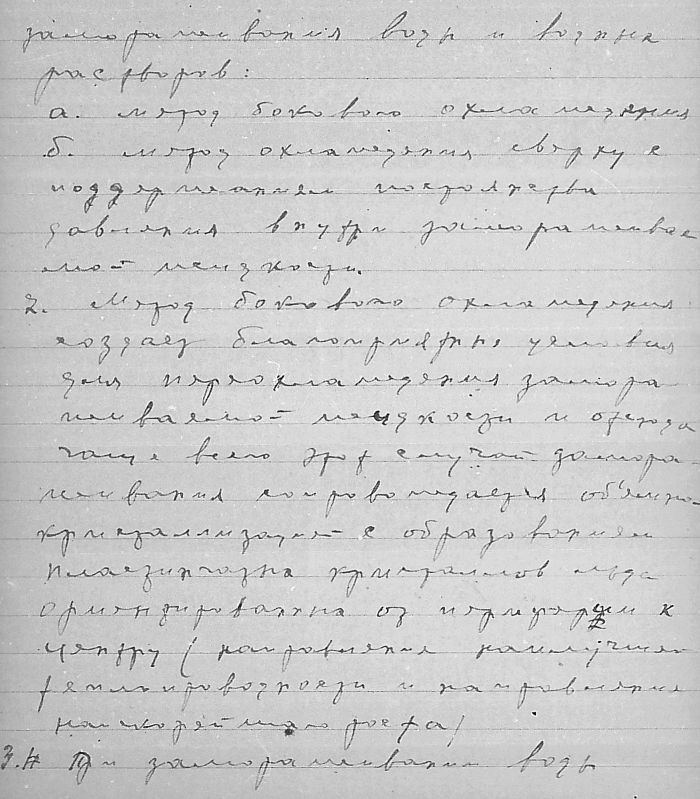 замораживания воды и водных
растворов:
а. метод бокового охлаждения
б. метод охлаждения сверху с
поддержанием постоянства
давления внутри заморажива
мой жидкости.
2. Метод бокового охлаждения
создает благоприятные условия
для переохлаждения замора
живаемой жидкости и отсюда
чаще всего этот случай замора-
живания сопровождается объемной
кристаллизацией с образованием
пластинчатых кристаллов льда
ориентированных от периферии к
центру (направление наилучшей
теплопроводности и направление
наискорейшего роста)
3. При замораживании воды